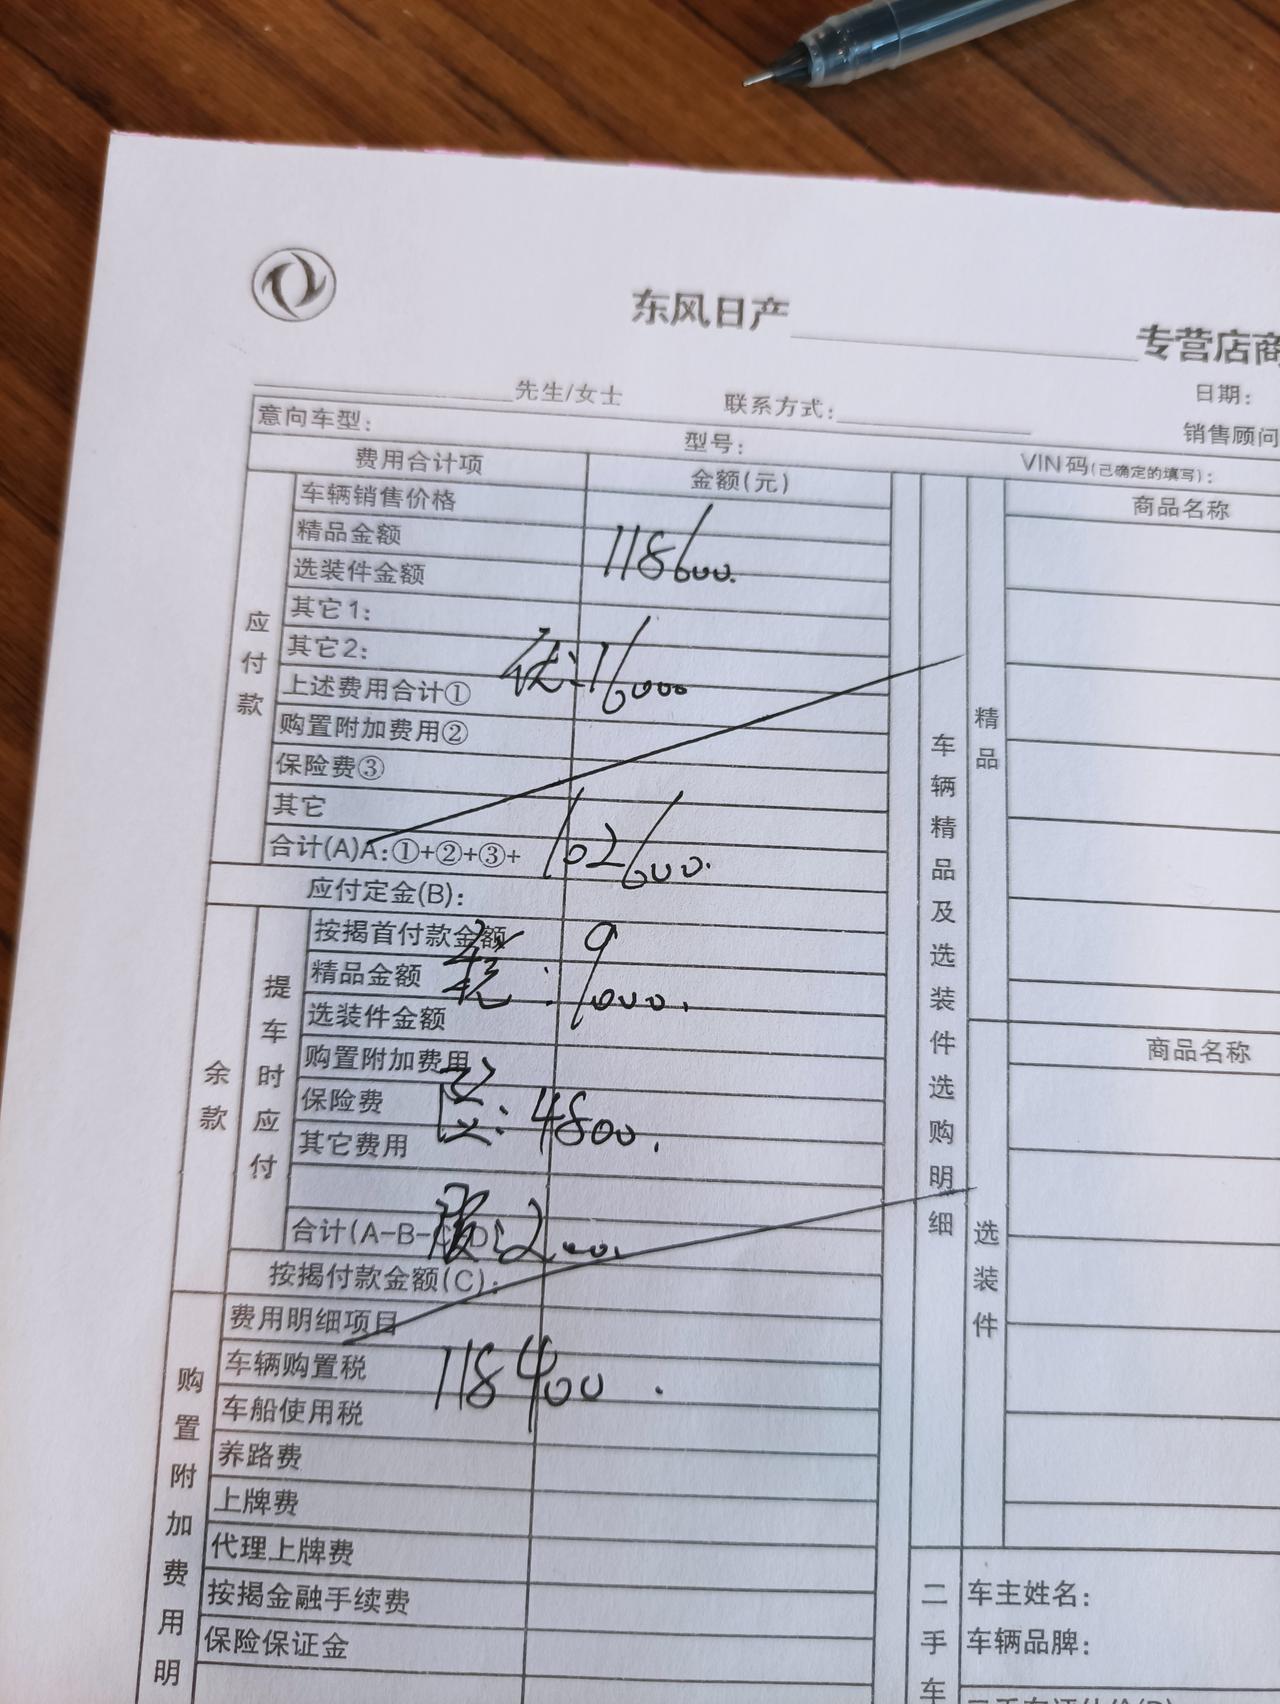 东风日产 专营店商
先生/女士 联系方式: 日期:
意向车型: 型号: 销售顾问
VIN码(已确定的填写):
费用合计项 金额(元)
应付款
车辆销售价格
精品金额 118600.
选装件金额
其它1:
其它2: 优:16000
上述费用合计①
购置附加费用②
保险费③
其它
合计(A)A:①+②+③+ 102600.
应付定金(B):
余款
提车时应付
按揭首付款金额
精品金额 税: 9000.
选装件金额
购置附加费用
保险费 4800.
其它费用
合计(A-B- 2000.
按揭付款金额(C):
购置附加费用明
费用明细项目
车辆购置税 118400.
车船使用税
养路费
上牌费
代理上牌费
按揭金融手续费
保险保证金
车辆精品及选装件选购明细
精品
商品名称
选装件
商品名称
二手车
车主姓名:
车辆品牌: